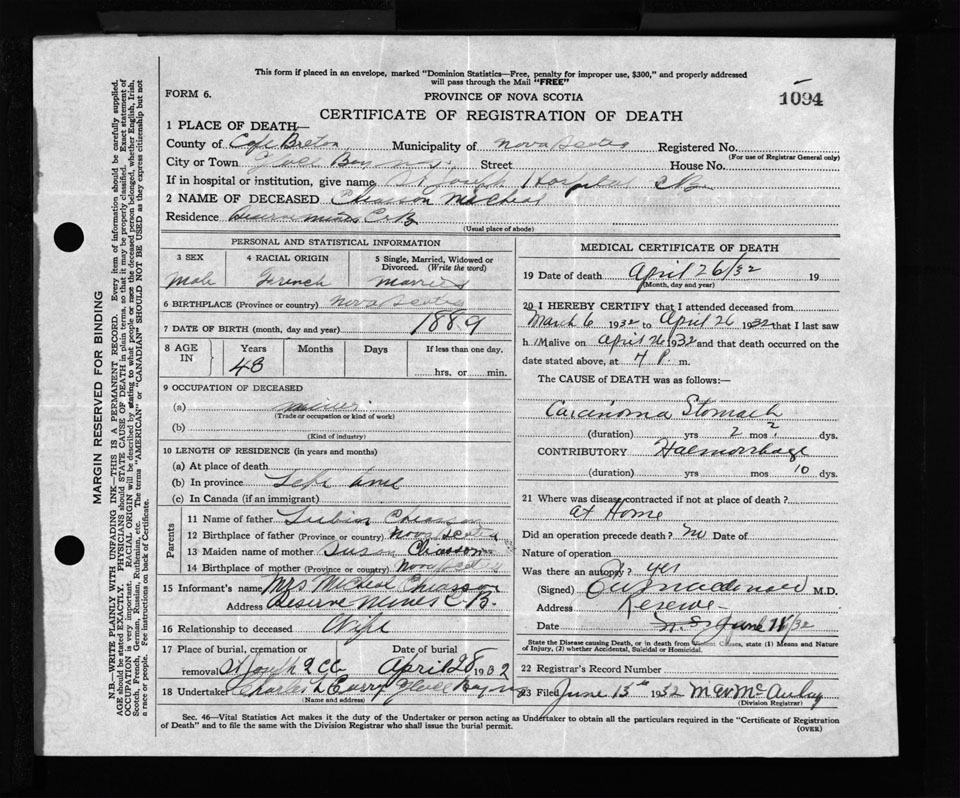 This form if placed in an envelope, marked "Dominion Statistics—Free, penalty for improper use, $300," and properly addressed
will pass through the Mail "FREE"
FORM 6.
PROVINCE OF NOVA SCOTIA
1094
CERTIFICATE OF REGISTRATION OF DEATH
1 PLACE OF DEATH—
County of Cape Breton Municipality of Nova Scotia Registered No.
(For use of Registrar General only)
City or Town Street House No.
If in hospital or institution, give name St Joseph Hospital C.B.
2 NAME OF DECEASED Chiasson
Residence Reserve Mines C.B.
(Usual place of abode)
PERSONAL AND STATISTICAL INFORMATION
3 SEX
Male
4 RACIAL ORIGIN
French
5 Single, Married, Widowed or
Divorced. (Write the word)
Married
6 BIRTHPLACE (Province or country) Nova Scotia
7 DATE OF BIRTH (month, day and year) 1889
8 AGE IN
Years
Months
Days
If less than one day.
hrs, or min.
43
9 OCCUPATION OF DECEASED
(a) miner
(Trade or occupation or kind of work)
(b)
(Kind of industry)
10 LENGTH OF RESIDENCE (in years and months)
(a) At place of death
(b) In province Life time
(c) In Canada (if an immigrant)
Parents
11 Name of father Lubin Chiasson
12 Birthplace of father (Province or country) Nova Scotia
13 Maiden name of mother Susan Chiasson
14 Birthplace of mother (Province or country) Nova Scotia
15 Informant's name Mrs Chiasson
Address Reserve Mines C.B.
16 Relationship to deceased Wife
17 Place of burial, cremation or
removal St Joseph
Date of burial
April 28 1932
18 Undertaker Charles L Curry
(Name and address)
MEDICAL CERTIFICATE OF DEATH
19 Date of death April 26/32 19
(Month, day and year)
20 I HEREBY CERTIFY that I attended deceased from
March 6 1932 to April 26 1932 that I last saw
h. alive on April 26 1932 and that death occurred on the
date stated above, at 4 P. m.
The CAUSE OF DEATH was as follows:—
Carcinoma Stomach
(duration) yrs 2 mos ? dys.
CONTRIBUTORY Haemorrhage
(duration) yrs mos 10 dys.
21 Where was disease contracted if not at place of death?
at Home
Did an operation precede death? no Date of
Nature of operation
Was there an autopsy? yes
(Signed) M.D.
Address Reserve
Date June 11/32
State the Disease causing Death, or in death from Violent Causes, state (1) Means and Nature
of Injury, (2) whether Accidental, Suicidal or Homicidal.
22 Registrar's Record Number
23 Filed June 13th 1932
(Division Registrar)
Sec. 46—Vital Statistics Act makes it the duty of the Undertaker or person acting as Undertaker to obtain all the particulars required in the "Certificate of Registration
of Death" and to file the same with the Division Registrar who shall issue the burial permit.
(OVER)
MARGIN RESERVED FOR BINDING
N.B.—WRITE PLAINLY WITH UNFADING INK—THIS IS A PERMANENT RECORD. Every item of information should be carefully supplied.
AGE should be stated EXACTLY. PHYSICIANS should STATE CAUSE OF DEATH in plain terms, so that it may be properly classified. Exact statement of
OCCUPATION is very important. RACIAL ORIGIN will be described by stating to what people or race the deceased person belonged, whether English, Irish,
Scotch, French, German, Russian, Ruthenian, etc. The terms "AMERICAN" or "CANADIAN" SHOULD NOT BE USED as they express citizenship but not
a race or people. Fee instructions on back of Certificate.